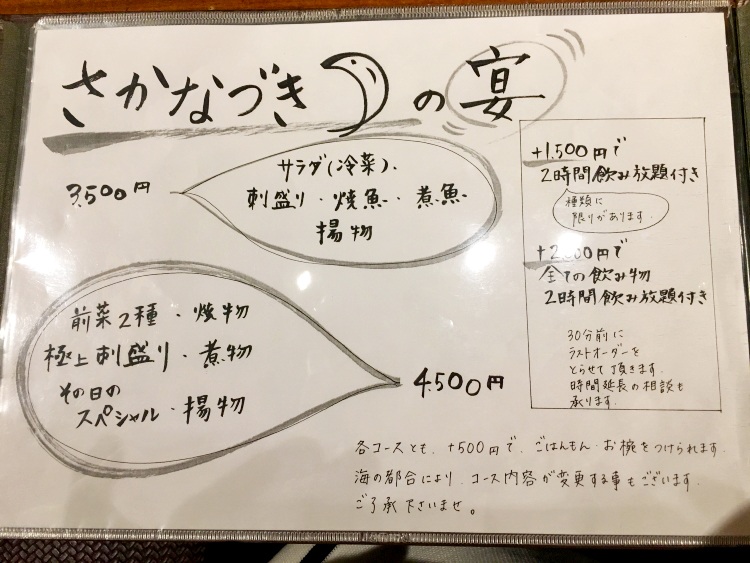 さかなづきの宴
3,500円
サラダ(冷菜)、
刺盛り・焼魚・煮魚
揚物
前菜2種・焼物
極上刺盛り・煮物
その日の
スペシャル・揚物
4,500円
+1,500円で
2時間飲み放題付き
種類に
限りがあります。
+2,000円で
全ての飲み物
2時間飲み放題付き
30分前に
ラストオーダーを
とらせて頂きます。
時間延長の相談も
承ります。
各コースとも、+500円で、ごはんもん・お椀をつけられます。
海の都合により、コース内容が変更する事もございます。
ご了承下さいませ。